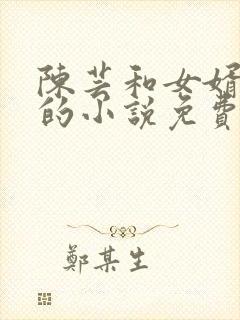 陳芸和女婿
的小說免費
鄭某生